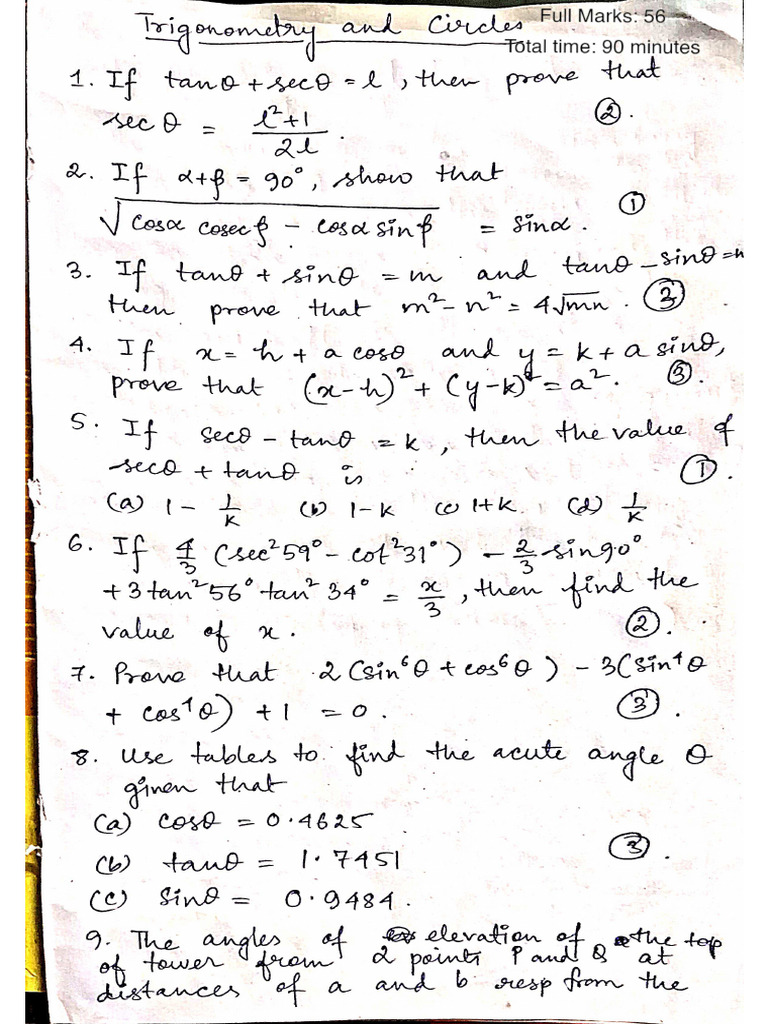 Trigonometry and Circles Full Marks: 56
Total time: 90 minutes
1. If tanθ + secθ = l, then prove that
secθ = (l²+1)/(2l). (2).
2. If α+β = 90°, show that
√(cosα cosecβ - cosα sinβ) = sinα. (1)
3. If tanθ + sinθ = m and tanθ - sinθ = n
then prove that m² - n² = 4√mn. (3)
4. If x = h + a cosθ and y = k + a sinθ,
prove that (x-h)² + (y-k)² = a². (3).
5. If secθ - tanθ = k, then the value of
secθ + tanθ is (1).
(a) 1 - 1/k (b) 1-k (c) 1+k. (d) 1/k
6. If 4/3 (sec²59° - cot²31°) - 2/3 sin90°
+ 3tan²56° tan²34° = x/3, then find the
value of x. (2).
7. Prove that 2(sin⁶θ + cos⁶θ) - 3(sin⁴θ
+ cos⁴θ) + 1 = 0. (3).
8. Use tables to find the acute angle θ
given that
(a) cosθ = 0.4625
(b) tanθ = 1.7451 (3).
(c) sinθ = 0.9484.
9. The angles of elevation of the top
of tower from 2 points P and Q at
distances of a and b resp from the